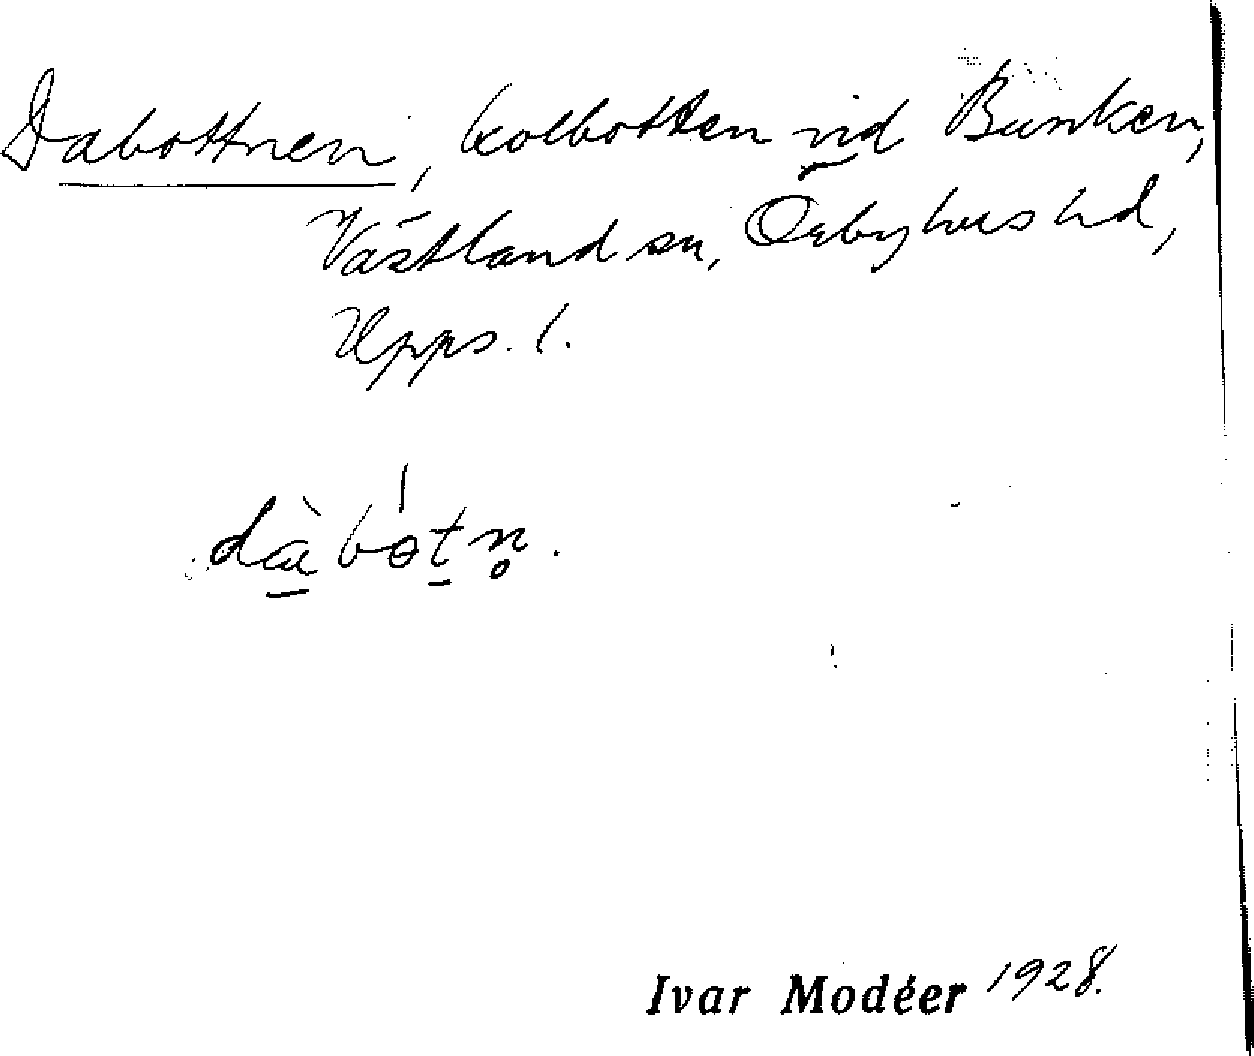 Dabottnen, kolbotten vid Bunken,
Västland sn, Örbyhus hd,
Upps. l.
dàbótn̥.
Ivar Modéer 1928.